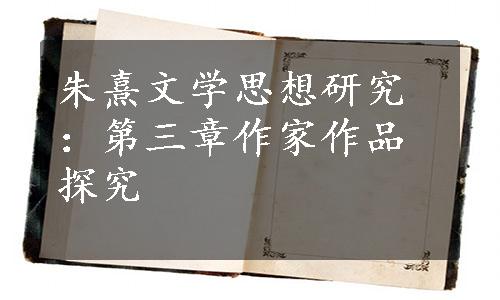 朱熹文学思想研究
：第三章作家作品
探究